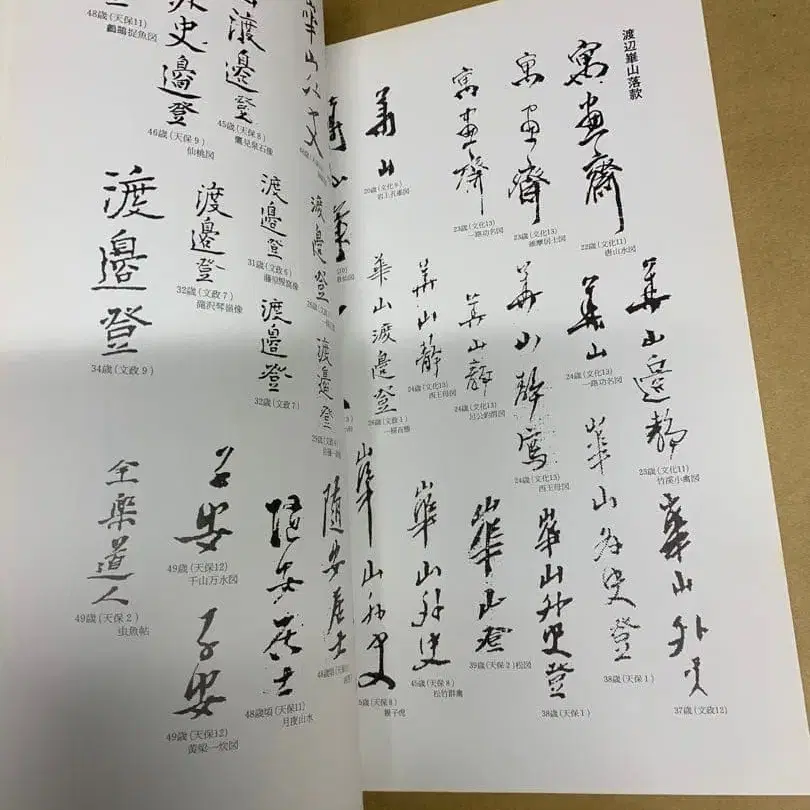 渡辺崋山落款
寓畫齋
22歳(文化11)
唐山水図
寓画齋
23歳(文化13)
維摩居士図
寓画齋
23歳(文化13)
一路功名図
華山
20歳(文化9)
華山邉静
23歳(文化11)
竹渓小禽図
華山
24歳(文化13)
一路功名図
華山静寫
24歳(文化13)
西王母図
華山静
24歳(文化13)
華山静
24歳(文化13)
西王母図
華山渡邉登
26歳(文政1)
崋山外史
37歳(文政12)
華山外史登
38歳(天保1)
崋山外史登
38歳(天保1)
崋山登
39歳(天保2)松図
崋山外史
45歳(天保8)
松竹群禽
崋山外史
親子虎
華山外史
48歳(天保11)
鸕鷀捉魚図
渡邉登
45歳(天保8)
鷹見泉石像
外史邉登
46歳(天保9)
仙桃図
渡邉登
渡邉登
31歳(文政6)
渡邉登
32歳(文政7)
滝沢琴嶺像
渡邉登
34歳(文政9)
渡邉登
渡邉登
32歳(文政7)
隨安居士
隨安居士
48歳頃(天保11)
月夜山水
子安
49歳(天保12)
千山万水図
子安
49歳(天保12)
黄粱一炊図
全楽道人
49歳(天保2)
虫魚帖